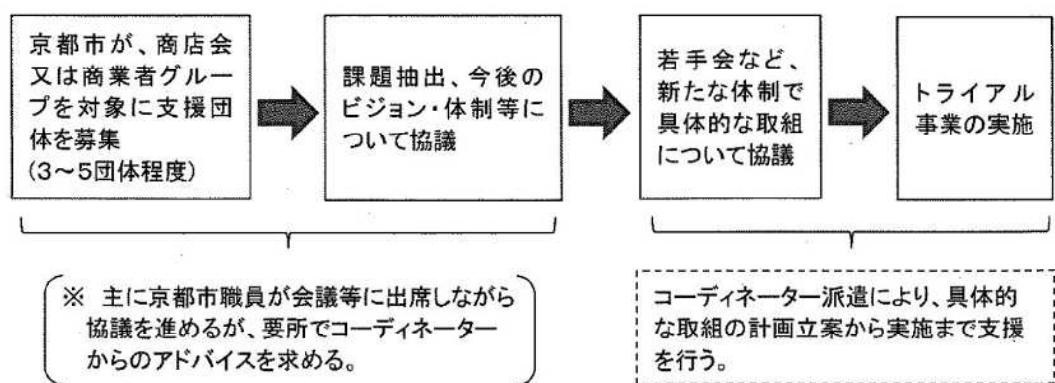 京都市が、商店会
又は商業者グルー
プを対象に支援団
体を募集
(3~5団体程度)
課題抽出、今後の
ビジョン・体制等に
ついて協議
若手会など、
新たな体制で
具体的な取組
について協議
トライアル
事業の実施
※ 主に京都市職員が会議等に出席しながら
協議を進めるが、要所でコーディネーター
からのアドバイスを求める。
コーディネーター派遣により、具体的
な取組の計画立案から実施まで支援
を行う。